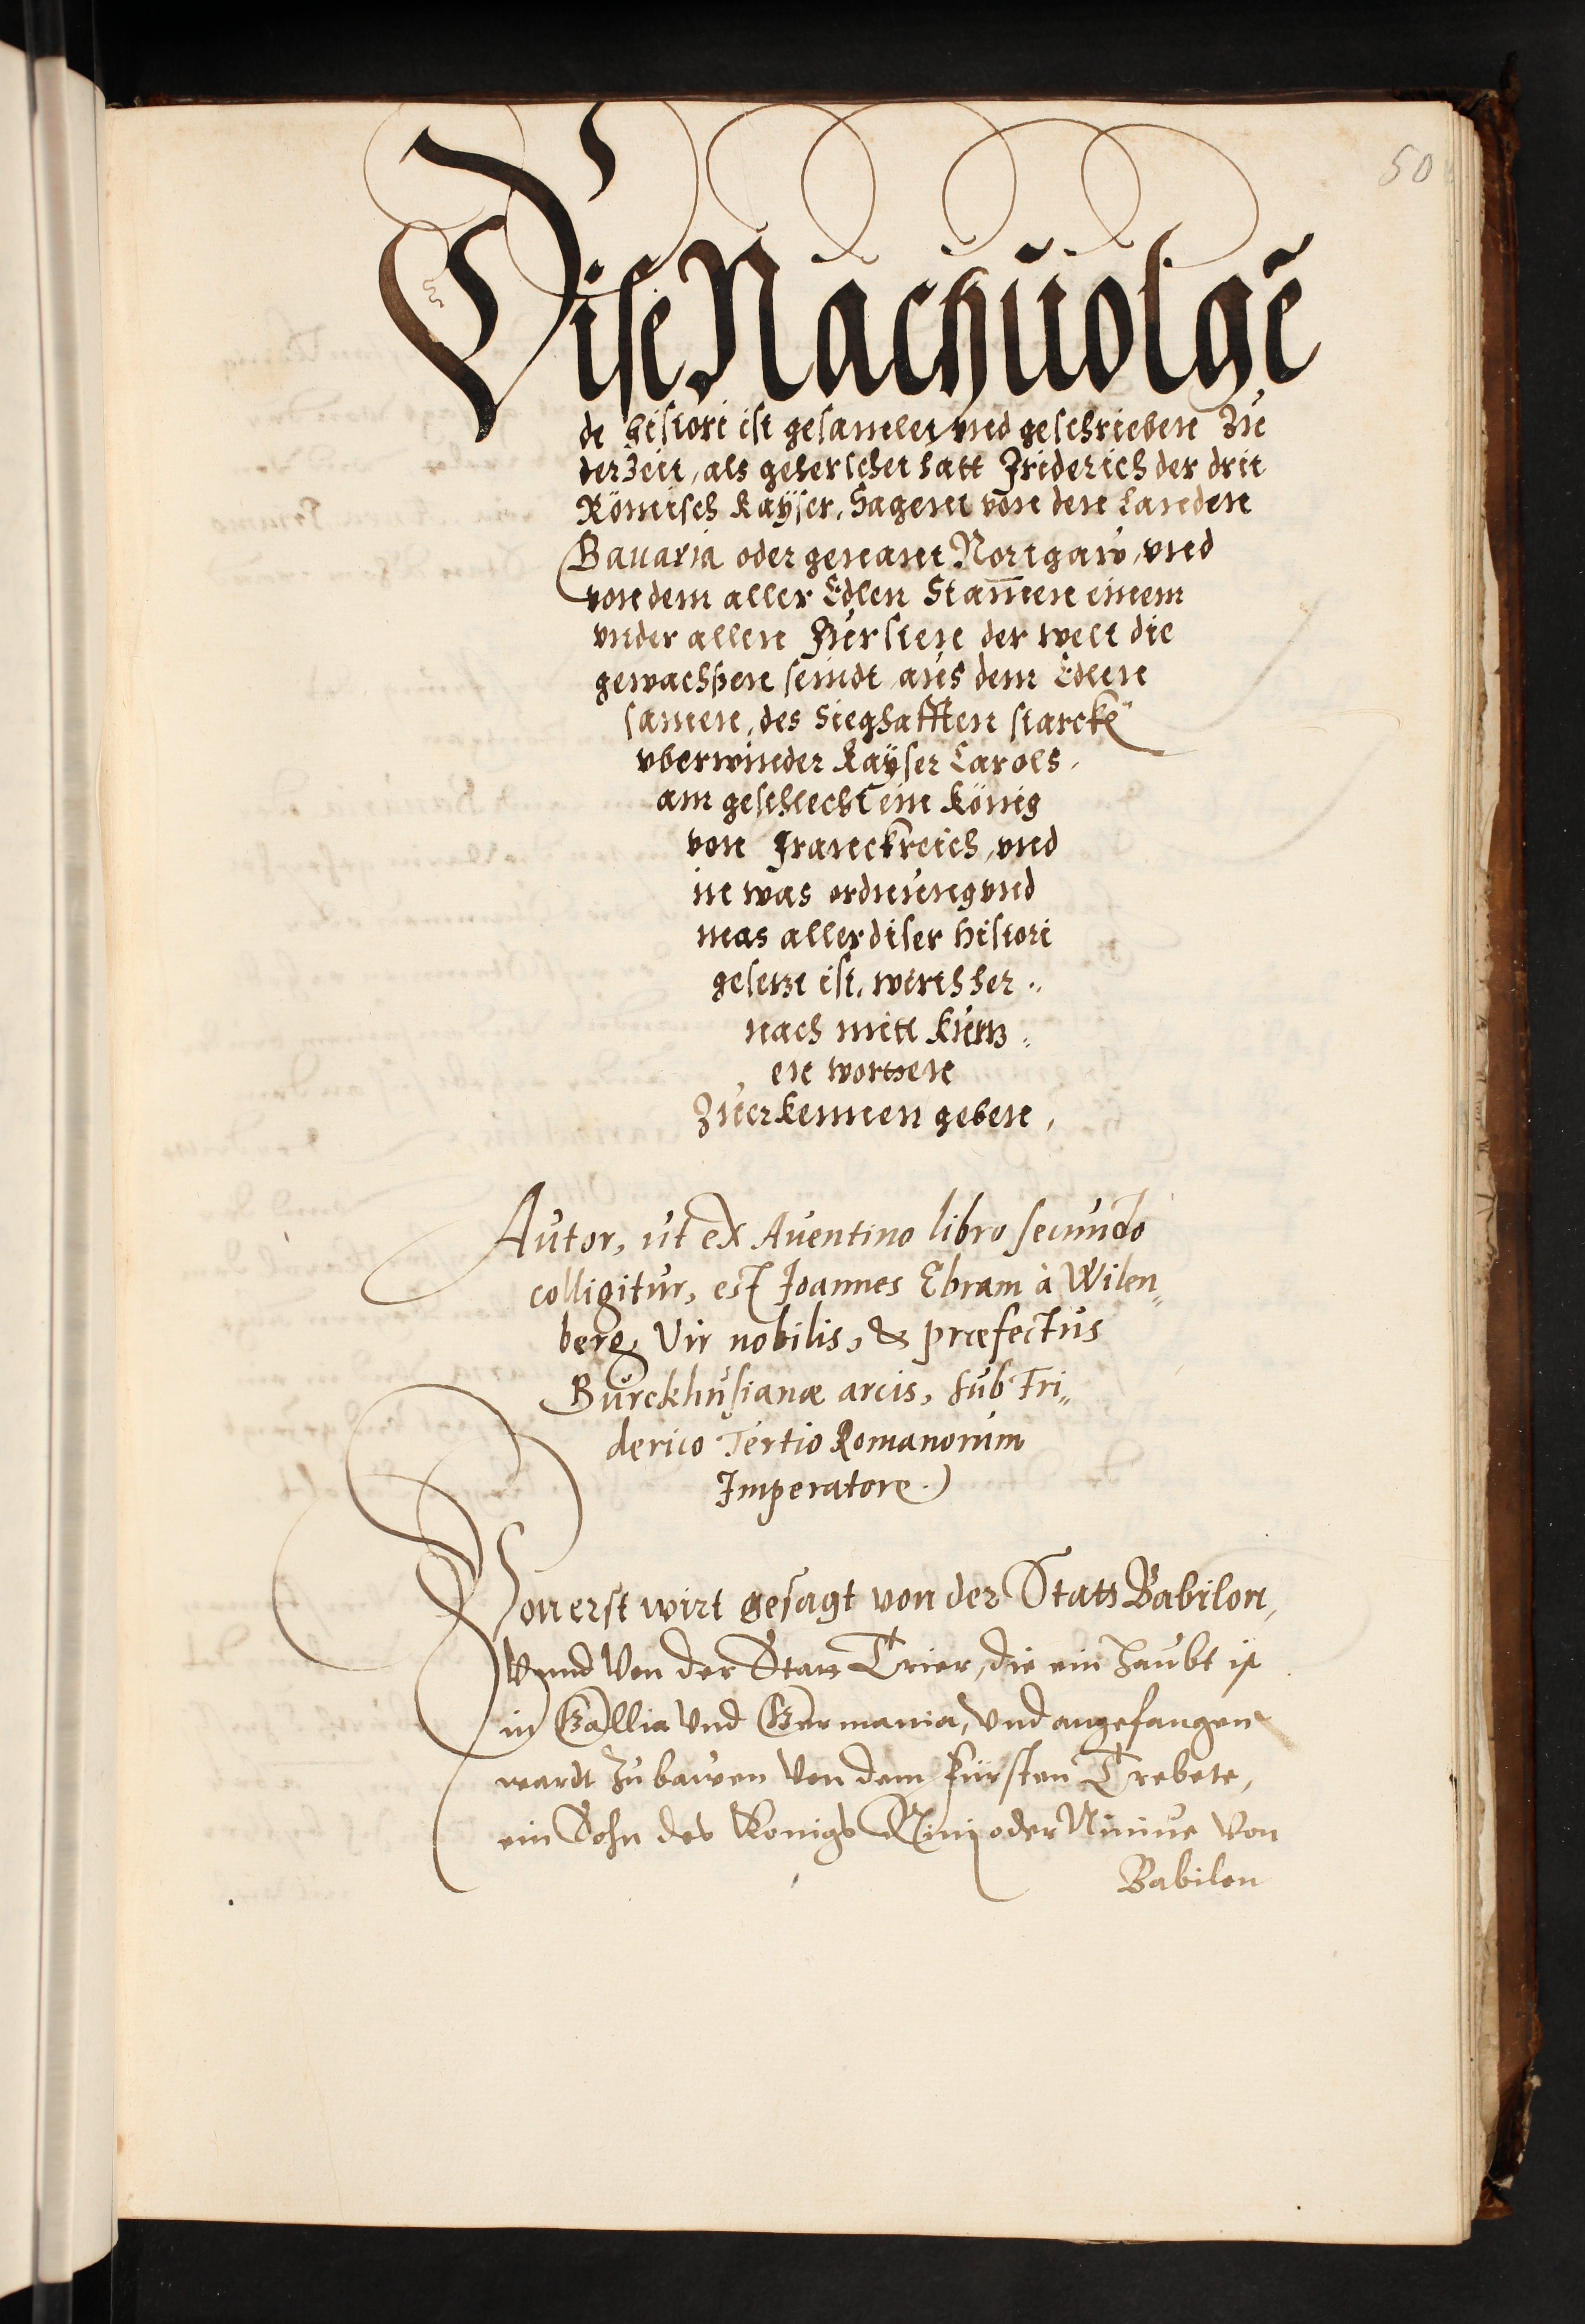 50
Dise Nachuolgē
de histori ist gesamlet vnd geschrieben Zu
der Zeit, als geherschet hatt Friderich der drit
Römisch Kayser, Sagent von den Landen
Bauaria oder genant Nortgaw, vnd
von dem aller Edlen Stam̄en einem
vnder allen Fürsten der welt die
gewachßen seindt aus dem Edlen
samen, des Sieghafften starckē
vberwinder Kayser Carols,
am geschlecht ein König
von Franckreich, vnd
in was ordnung vnd
mas aller diser histori
gesetzt ist, wirth her„
nach mitt Kurtz„
en wortten
Zuerkennen geben,
Autor, ut ex Auentino libro secundo
colligitur, est Joannes Ebram à Wilen„
berg, Vir nobilis, & præfectus
Burckhusianæ arcis, sub Fri„
derico Tertio Romanorum
Imperatore.
Von erst wirt gesagt von der Statt Babilon,
Vnnd Von der Statt Trier, die ein haubt ist
in Gallia Vnd Germania, Vnd angefangen
wardt Zu bawen Von dem fürsten Trebete,
ein Sohn des Konigs Nini oder Ninius Von
Babilon